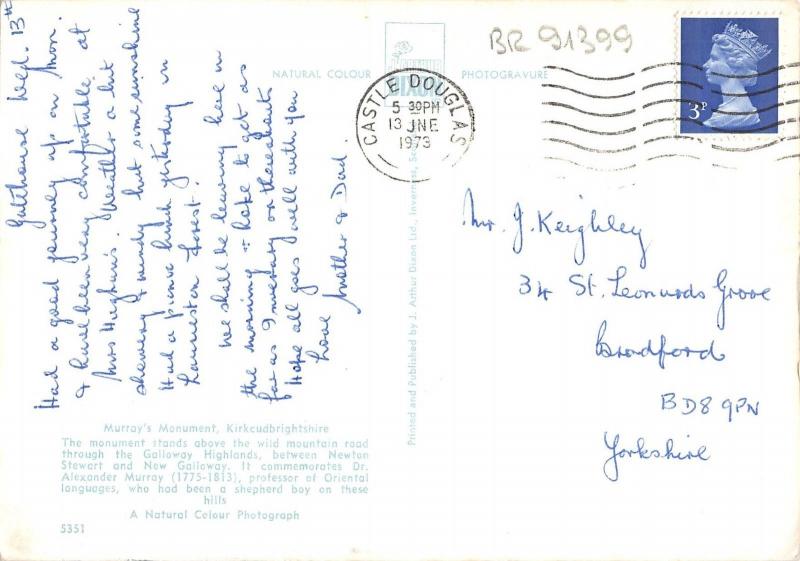 Gatehouse Wed. 13th
Had a good journey up on Mon.
& have been very comfortable at
Mrs Hughan's. Weather a bit
showery & windy but some sunshine
Had a picnic lunch yesterday in
Laurieston Forest.
We shall be leaving here in
the morning & hope to get as
far as Inveraray on Thursday
Hope all goes well with you
Love Mother & Dad.
Murray's Monument, Kirkcudbrightshire
The monument stands above the wild mountain road
through the Galloway Highlands, between Newton
Stewart and New Galloway. It commemorates Dr.
Alexander Murray (1775-1813), professor of Oriental
languages, who had been a shepherd boy on these
hills
A Natural Colour Photograph
5351
NATURAL COLOUR
DIXON
PHOTOGRAVURE
Printed and Published by J. Arthur Dixon Ltd., Inverness,
BR 91399
CASTLE DOUGLAS
5 30PM
13 JNE
1973
3P
Mr. J. Keighley
34 St. Leonards Grove
Bradford
BD8 9PN
Yorkshire